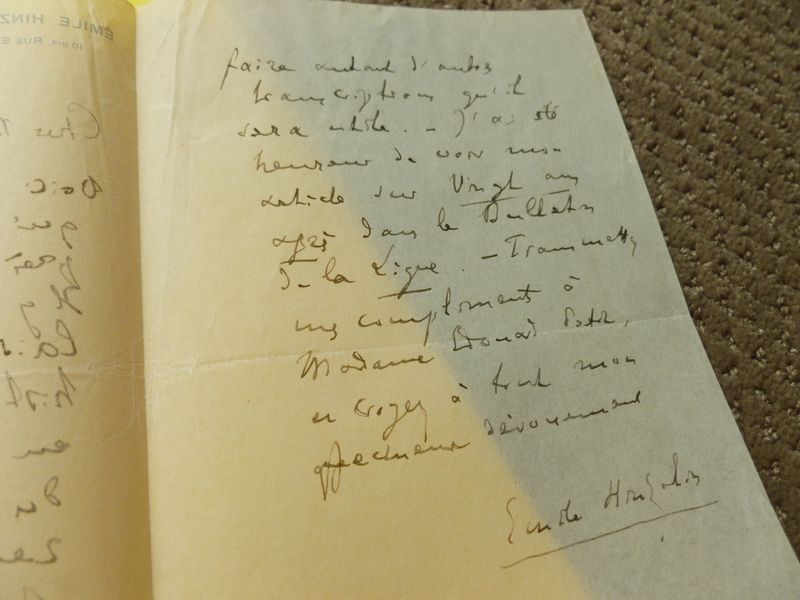 EMILE HINZ
10 BIS, RUE S
faire autant d'autres
transcriptions qu'il
sera utile. – J'ai été
heureux de voir mon
article sur Vingt ans
après dans le Bulletin
de la Ligue. – Transmettez
mes compliments à
Madame Edouard
et croyez à tout mon
affectueux dévouement
Emile Hinzelin